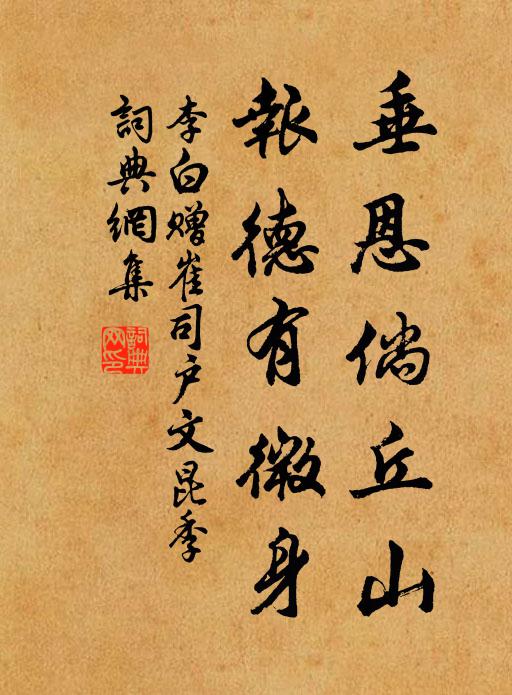 垂恩倘丘山
報德有微身
李白贈崔司户文昆季
詞典網集
詞典網印